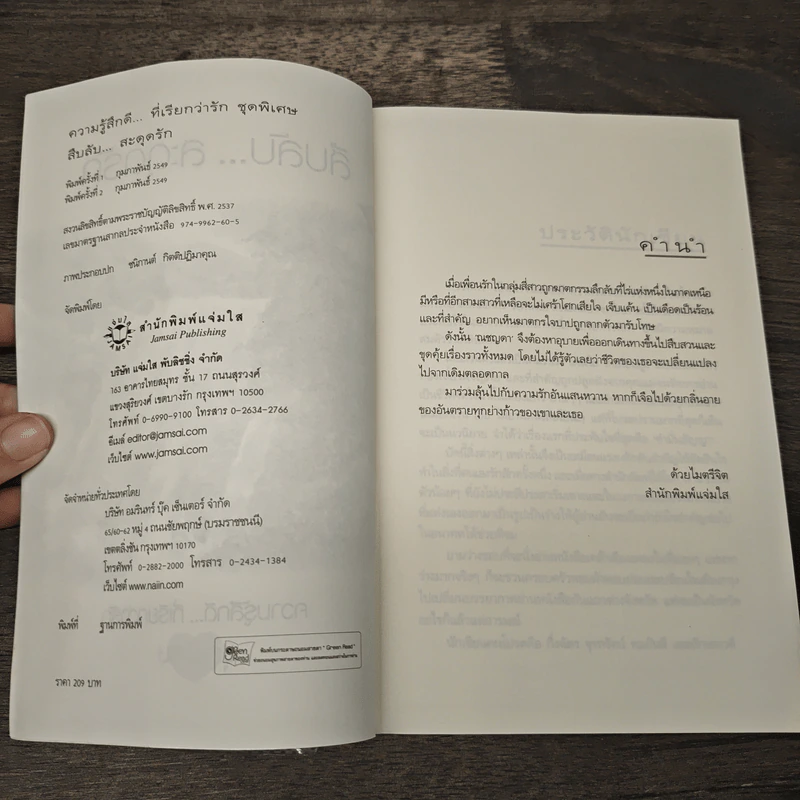 ความรู้สึกดี... ที่เรียกว่ารัก ชุดพิเศษ
สืบลับ... สะดุดรัก
พิมพ์ครั้งที่ 1 กุมภาพันธ์ 2549
พิมพ์ครั้งที่ 2 กุมภาพันธ์ 2549
สงวนลิขสิทธิ์ตามพระราชบัญญัติลิขสิทธิ์ พ.ศ. 2537
เลขมาตรฐานสากลประจำหนังสือ 974-9962-60-5
ภาพประกอบปก ชนิกานต์ กิตติปฏิมาคุณ
จัดพิมพ์โดย
สำนักพิมพ์แจ่มใส
Jamsai Publishing
บริษัท แจ่มใส พับลิชชิ่ง จำกัด
163 อาคารไทยสมุทร ชั้น 17 ถนนสุรวงศ์
แขวงสุริยวงศ์ เขตบางรัก กรุงเทพฯ 10500
โทรศัพท์ 0-6990-9100 โทรสาร 0-2634-2766
อีเมล์ editor@jamsai.com
เว็บไซต์ www.jamsai.com
จัดจำหน่ายทั่วประเทศโดย
บริษัท อมรินทร์ บุ๊ค เซ็นเตอร์ จำกัด
65/60-62 หมู่ 4 ถนนชัยพฤกษ์ (บรมราชชนนี)
เขตตลิ่งชัน กรุงเทพฯ 10170
โทรศัพท์ 0-2882-2000 โทรสาร 0-2434-1384
เว็บไซต์ www.naiin.com
พิมพ์ที่ ฐานการพิมพ์
Green Read
พิมพ์บนกระดาษถนอมสายตา "Green Read"
ราคา 209 บาท
คำนำ
เมื่อเพื่อนรักในกลุ่มสี่สาวถูกฆาตกรรมลึกลับที่ไร่แห่งหนึ่งในภาคเหนือ
มีหรือที่อีกสามสาวที่เหลือจะไม่เศร้าโศกเสียใจ เจ็บแค้น เป็นเดือดเป็นร้อน
และที่สำคัญ อยากเห็นฆาตกรใจบาปถูกลากตัวมารับโทษ
ดังนั้น 'ณชญดา' จึงต้องหาอุบายเพื่อออกเดินทางขึ้นไปสืบสวนและ
ขุดคุ้ยเรื่องราวทั้งหมด โดยไม่ได้รู้ตัวเลยว่าชีวิตของเธอจะเปลี่ยนแปลง
ไปจากเดิมตลอดกาล
มาร่วมลุ้นไปกับความรักอันแสนหวาน หากก็เจือไปด้วยกลิ่นอาย
ของอันตรายทุกย่างก้าวของเขาและเธอ
ด้วยไมตรีจิต
สำนักพิมพ์แจ่มใส